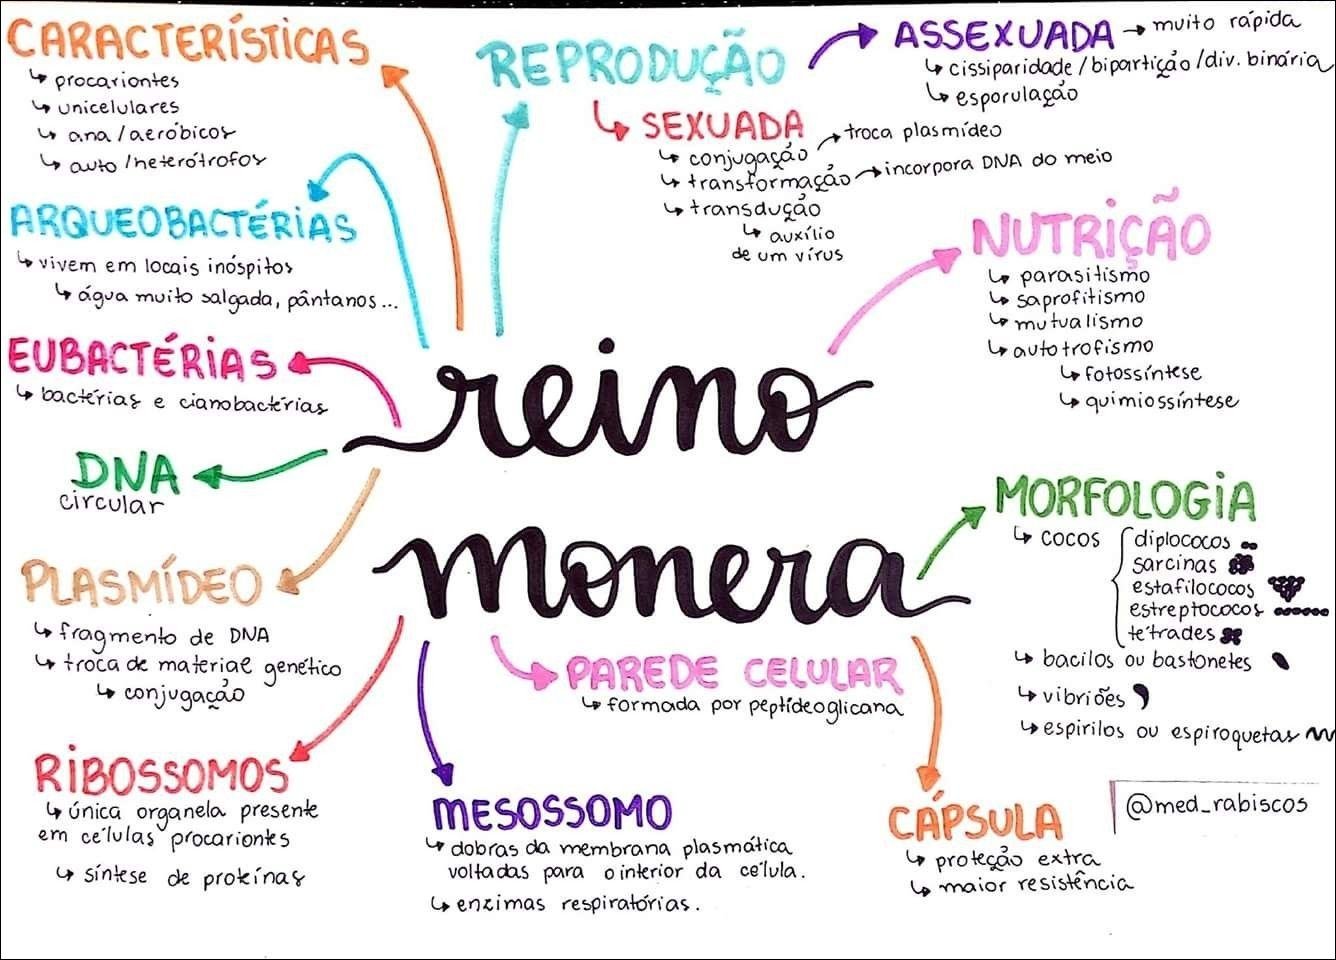 CARACTERÍSTICAS
↳ procariontes
↳ unicelulares
↳ ana/aeróbicos
↳ auto/heterótrofos
REPRODUÇÃO
ASSEXUADA → muito rápida
↳ cissiparidade/bipartição/div. binária
↳ esporulação
SEXUADA
↳ conjugação → troca plasmídeo
↳ transformação → incorpora DNA do meio
↳ transdução
↳ auxílio
de um vírus
ARQUEOBACTÉRIAS
↳ vivem em locais inóspitos
↳ água muito salgada, pântanos...
NUTRIÇÃO
↳ parasitismo
↳ saprofitismo
↳ mutualismo
↳ autotrofismo
↳ fotossíntese
↳ quimiossíntese
EUBACTÉRIAS
↳ bactérias e cianobactérias
reino
monera
DNA
circular
MORFOLOGIA
↳ cocos
diplococos
sarcinas
estafilococos
estreptococos
tétrades
↳ bacilos ou bastonetes
↳ vibriões
↳ espirilos ou espiroquetas
PLASMÍDEO
↳ fragmento de DNA
↳ troca de material genético
↳ conjugação
PAREDE CELULAR
↳ formada por peptídeoglicana
RIBOSSOMOS
↳ única organela presente
em células procariontes
↳ síntese de proteínas
MESOSSOMO
↳ dobras da membrana plasmática
voltadas para o interior da célula.
↳ enzimas respiratórias.
CÁPSULA
↳ proteção extra
↳ maior resistência
@med_rabiscos